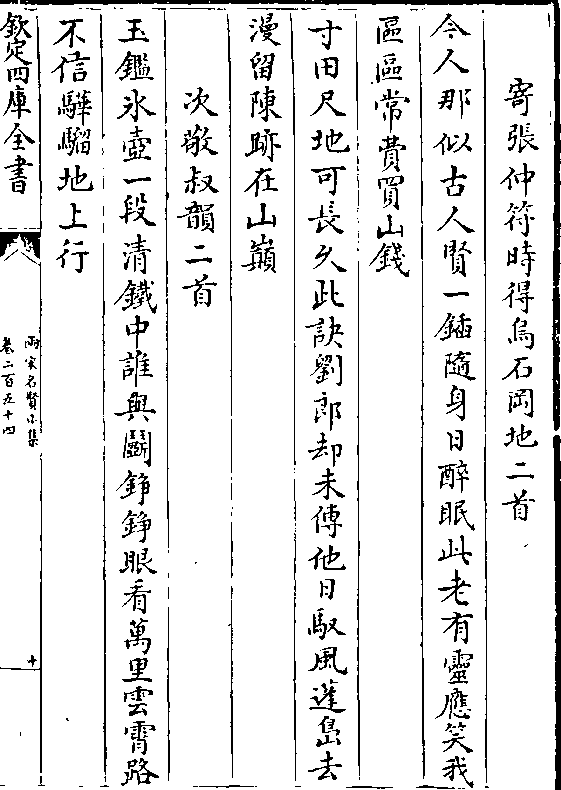 寄張仲符時得烏石岡地二首
今人那似古人賢一鍤隨身日醉眠此老有靈應笑我
區區常費買山錢
寸田尺地可長久此訣劉郎却未傳他日馭風蓬島去
漫留陳跡在山巔
次敬叔韻二首
玉鑑氷壺一段清鐵中誰與鬭錚錚眼看萬里雲霄路
不信驊騮地上行
欽定四庫全書
兩宋名賢小集
卷二百五十四
十